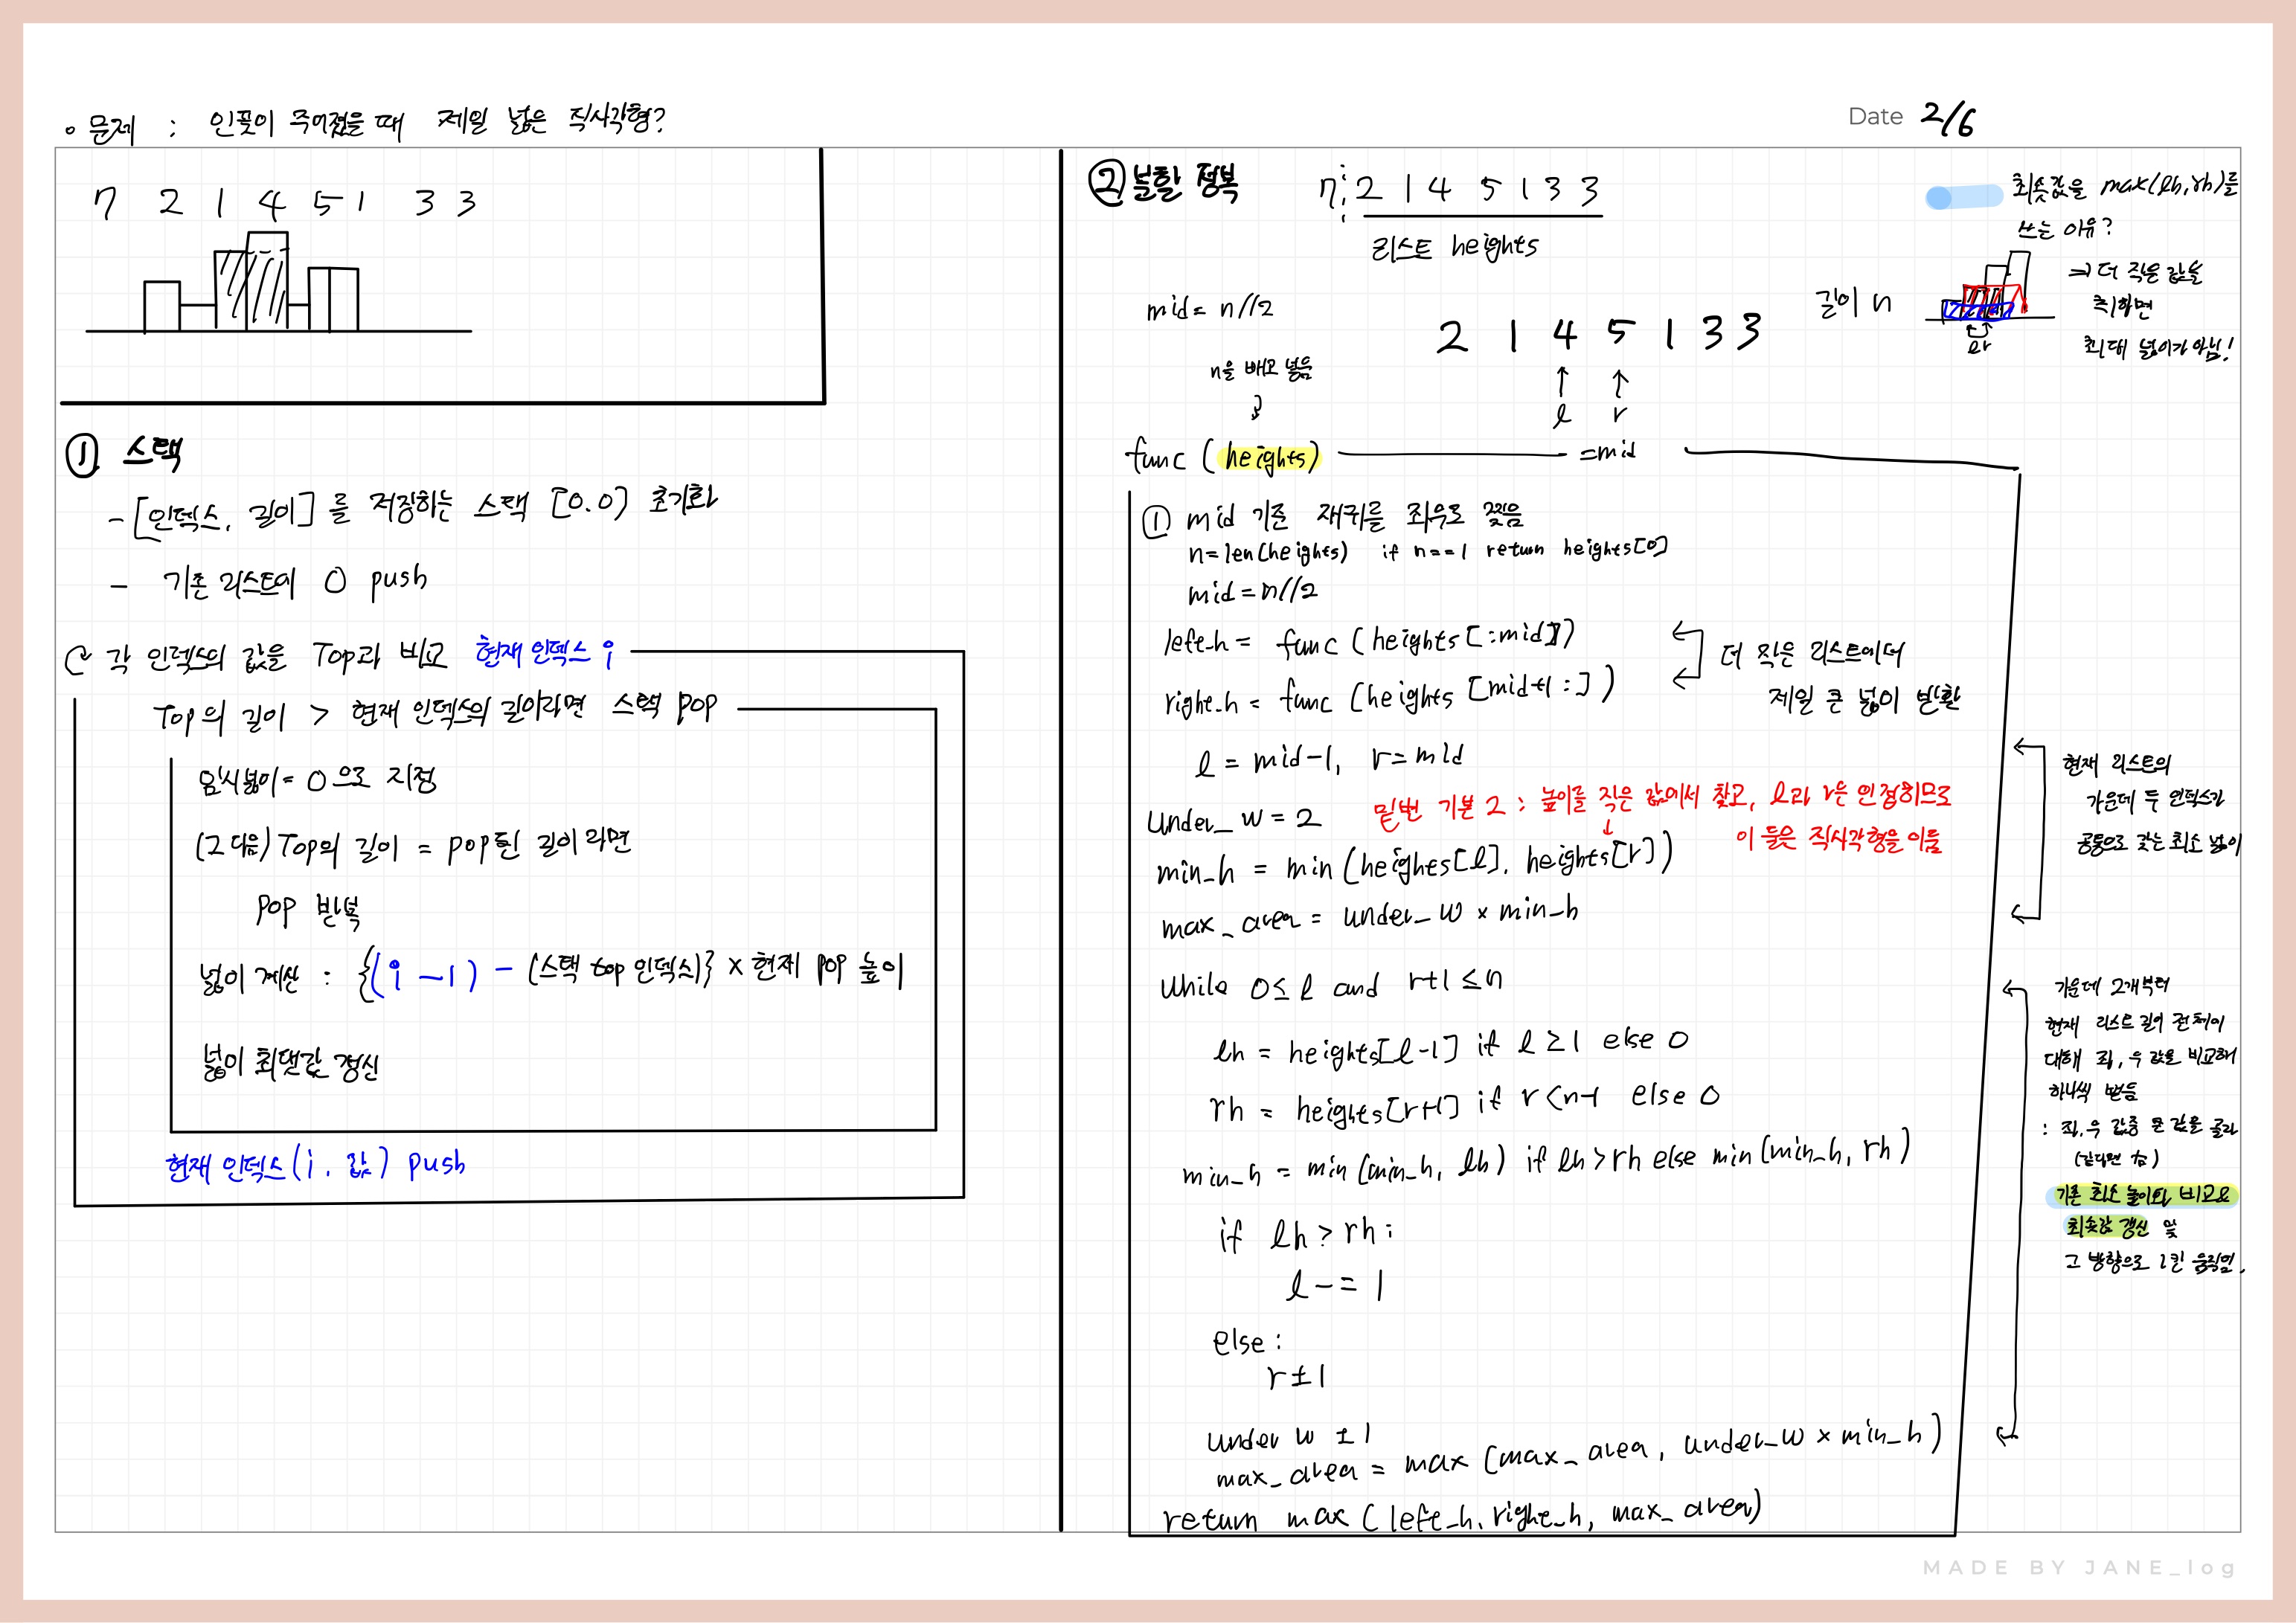 ∘ 문제 : 인풋이 주어졌을 때 제일 넓은 직사각형?
Date 2/6
7 2 1 4 5 1 3 3
① 스택
- [인덱스, 길이]를 저장하는 스택 [0.0] 초기화
- 기존 리스트에 0 push
각 인덱스의 값을 Top과 비교 현재 인덱스 i
Top의 길이 > 현재 인덱스의 길이라면 스택 pop
임시넓이 = 0 으로 지정
(그 다음) Top의 길이 = pop된 길이 라면
POP 반복
넓이 계산 : {(i - 1) - (스택 top 인덱스)} × 현재 pop 높이
넓이 최댓값 갱신
현재 인덱스(i, 값) push
② 분할 정복
7: 2 1 4 5 1 3 3
리스트 heights
mid = n//2
길이 n
2 1 4 5 1 3 3
n을 빼고 넣음
l r
func (heights)
=mid
① mid 기준 재귀를 좌우로 찢음
n=len(heights) if n==1 return heights[0]
mid = n//2
left_h = func (heights[:mid])
right_h = func (heights [mid+1 :])
더 작은 리스트에서
제일 큰 넓이 반환
l = mid-1, r=mid
under_w = 2
밑변 기본 2 : 높이를 작은 값에서 찾고, l과 r은 인접하므로
이 둘은 직사각형을 이룸
min_h = min (heights[l], heights[r])
max_area = under_w × min_h
현재 리스트의
가운데 두 인덱스가
공통으로 갖는 최소 넓이
while 0≤ l and r+1 ≤n
lh = heights[l-1] if l ≥1 else 0
rh = heights[r+1] if r<n-1 else 0
min_h = min (min_h, lh) if lh>rh else min (min_h, rh)
if lh > rh :
l -= 1
else :
r ± 1
under w ± 1
max_area = max (max_area, under_w × min_h)
return max (left_h, right_h, max_area)
가운데 2개부터
현재 리스트 길이 전체에
대해 좌, 우 값을 비교해
하나씩
: 좌, 우 값중 큰 값을 골라
(같다면 우)
기존 최소 높이와 비교로
최솟값 갱신 및
그 방향으로 1칸 움직임.
최솟값을 max(lh, rh)를
쓰는 이유?
⇒ 더 작은 값을
취하면
최대 넓이가 아님!
lr
MADE BY JANE_log